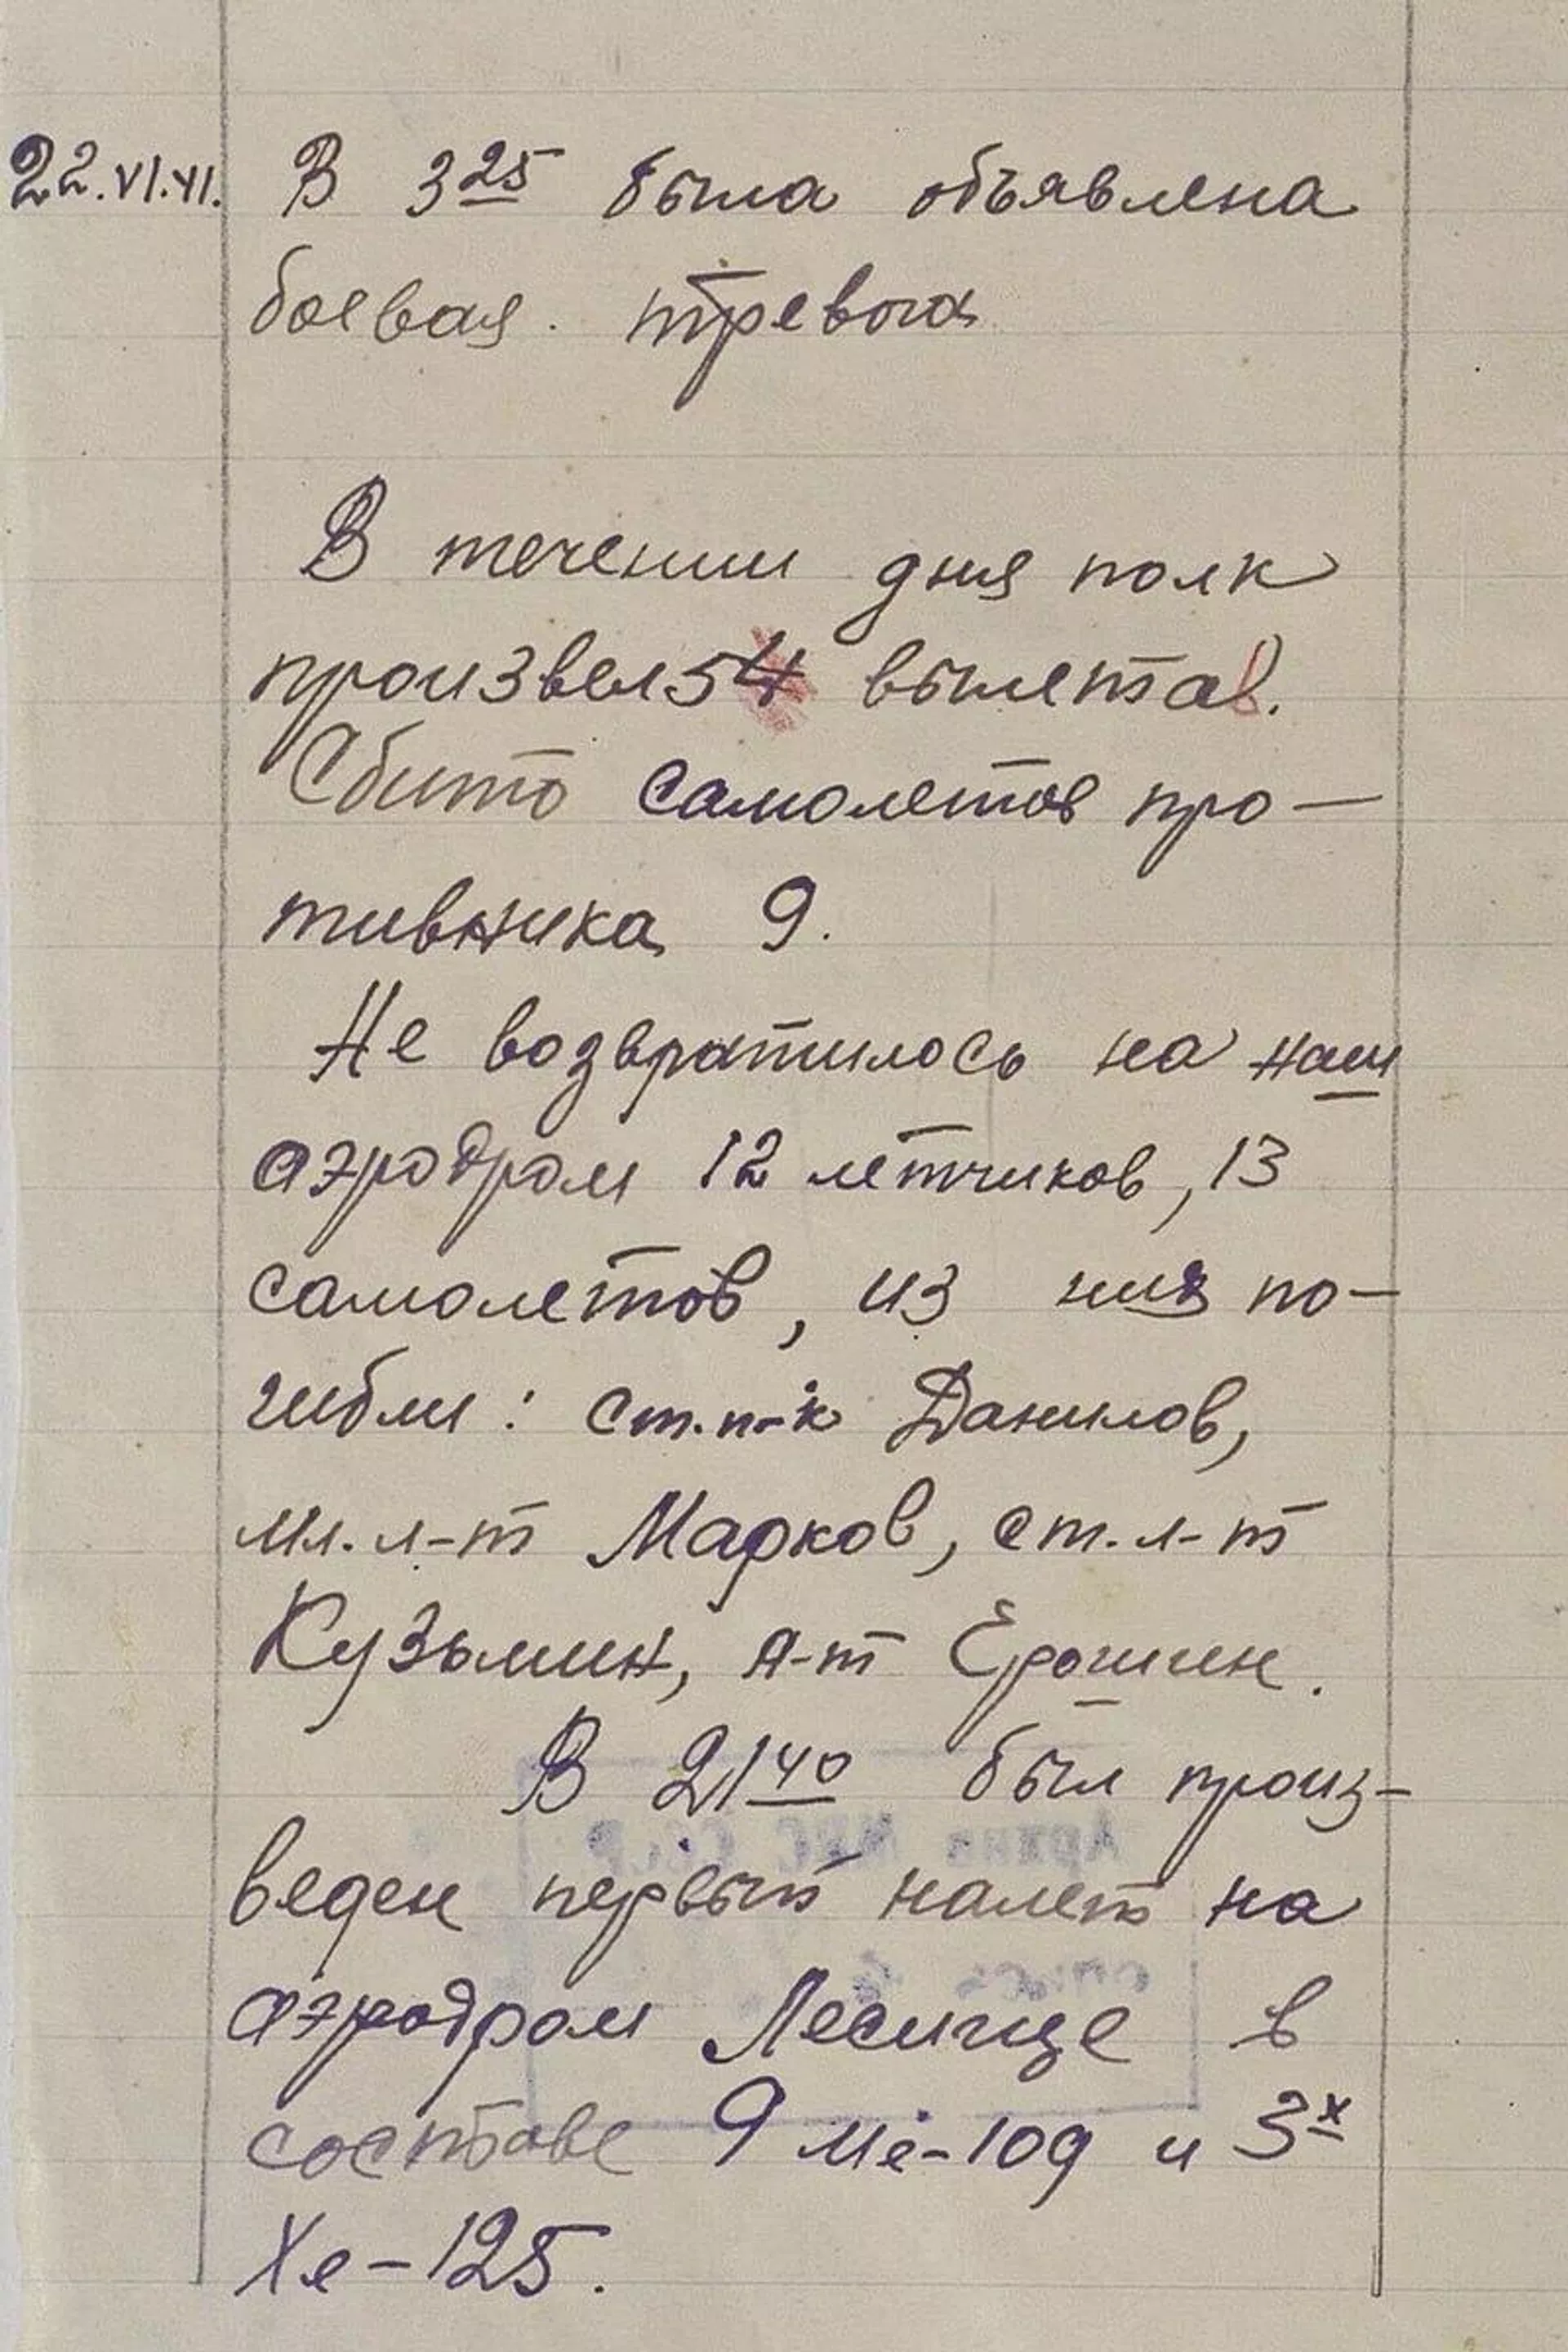 22.VI.41. В 3 25 была объявлена
боевая. тревога
В течении дня полк
произвел 54 вылета.
Сбито самолетов про-
тивника 9.
Не возвратилось на наш
аэродром 12 летчиков, 13
самолетов, из них по-
гибли: ст.п-к Данилов,
мл. л-т Марков, ст. л-т
Кузьмин, л-т Ерошин.
В 21 40 был произ-
веден первый налет на
аэродром Лесище в
составе 9 Ме-109 и 3х
Хе-125.